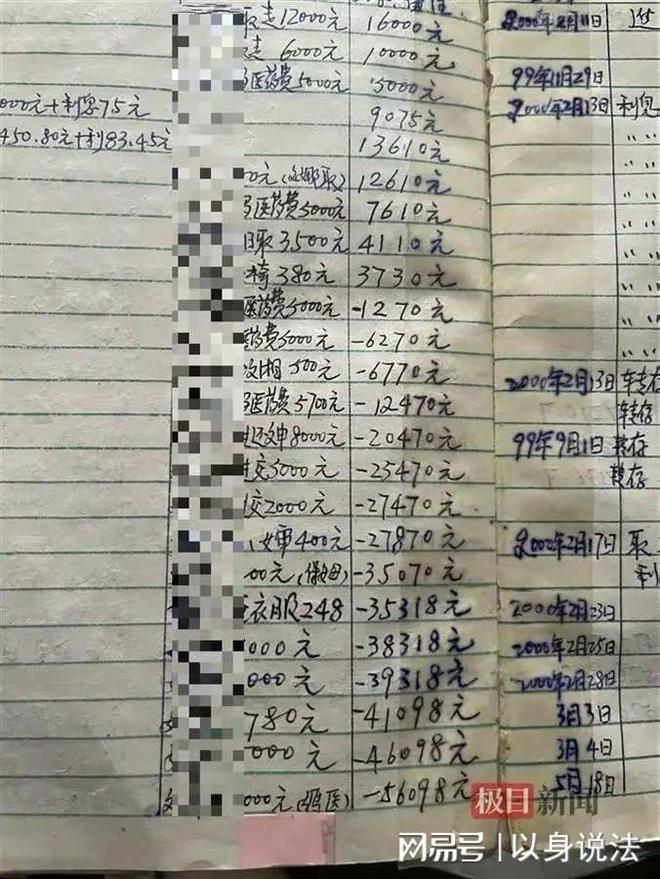 走12000元 16000元 2000年2月11日
走 6000元 10000元
医药费5000元 5000元 99年11月29日
000元+利息75元 9075元 2000年2月13日 利息
450.80元+利83.45元 13610元 〃 〃
0元 取) 12610元 〃 〃
医药费5000元 7610元 〃 〃
取3500元 4110元 〃 〃
椅380元 3730元 〃 〃
医药费5000元 -1270元 〃 〃
药费5000元 -6270元 〃 〃
500元 -6770元 2000年2月13日 转存
医药费5700元 -12470元 转存
8000元 -20470元 99年9月1日 转存
交5000元 -25470元 转存
交2000元 -27470元
400元 -27870元 2000年2月17日 取
00元(保姆) -35070元 利
衣服248 -35318元 2000年2月23日
000元 -38318元 2000年2月25日
000元 -39318元 2000年2月28日
780元 -41098元 3月3日
000元 -46098元 3月4日
000元 -56098元 5月18日
极目新闻
网易号 | 以身说法